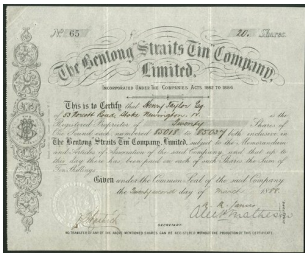 No. 65
20. Shares
The Bentong Straits Tin Company,
Limited.
INCORPORATED UNDER THE COMPANIES ACTS, 1862 TO 1886.
This is to Certify that Henry Taylor Esq
of Stoke Newington
is the Registered Proprietor of Twenty Shares of
One Pound each numbered 65018 to 65037 both inclusive in
The Bentong Straits Tin Company, Limited, subject to the Memorandum
and Articles of Association of the said Company and that up to
this day there has been paid on each of such Shares the Sum of
Ten Shillings
Given under the Common Seal of the said Company
the day of March 1889.
SECRETARY